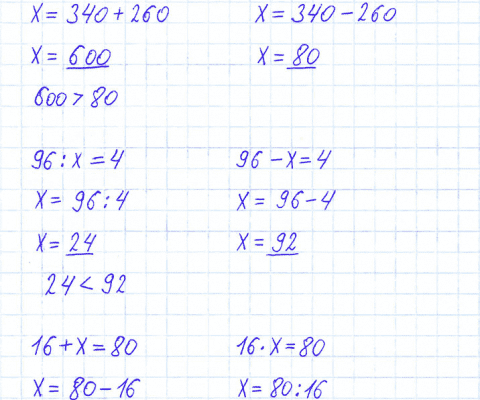 x = 340 + 260
x = 340 - 260
x = 600
x = 80
600 > 80
96 : x = 4
96 - x = 4
x = 96 : 4
x = 96 - 4
x = 24
x = 92
24 < 92
16 + x = 80
16 · x = 80
x = 80 - 16
x = 80 : 16